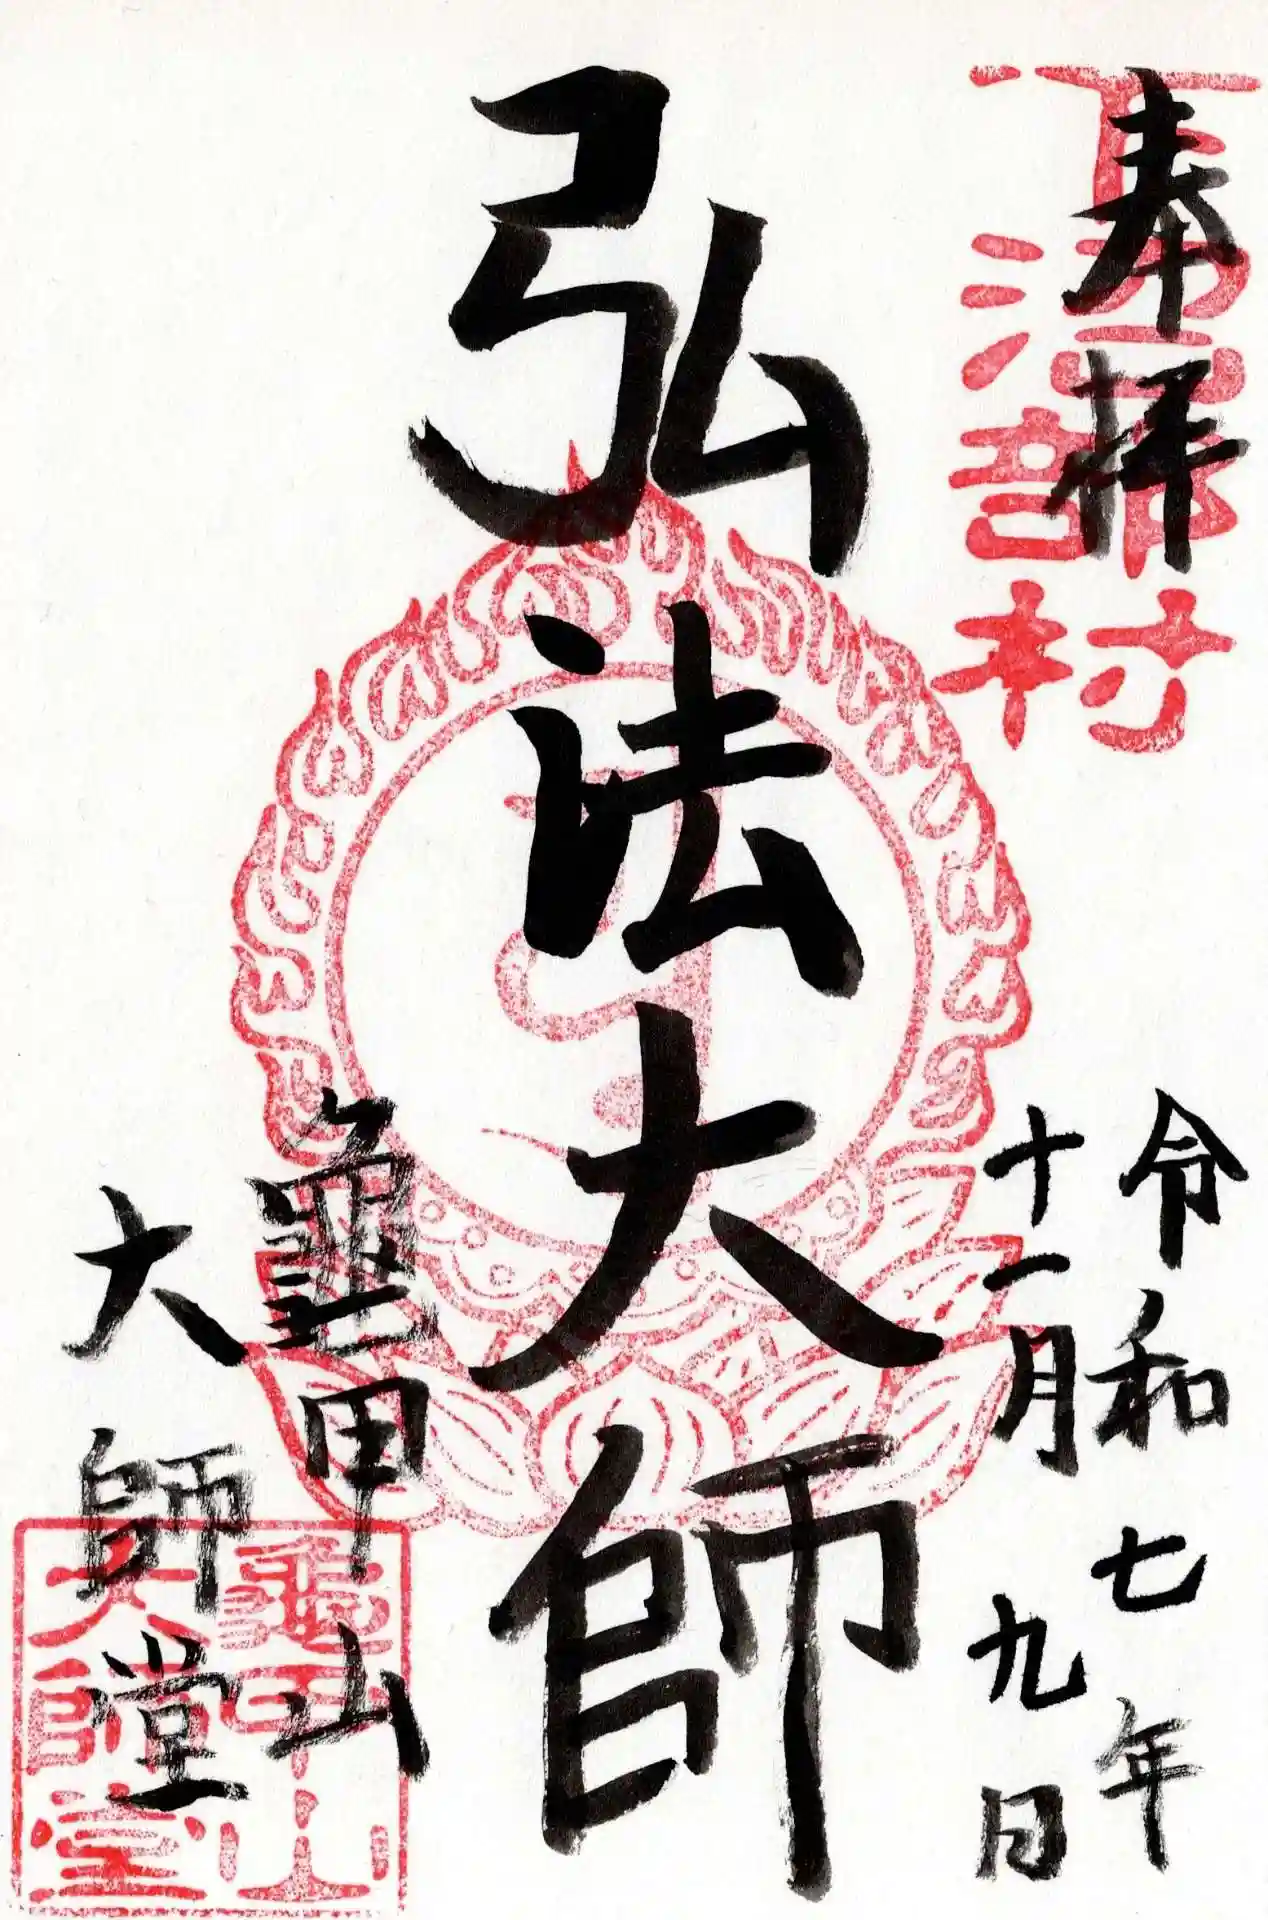 奉拝
令和七年
十一月九日
弘法大師
龜甲山
大師堂
龜甲山
大師堂